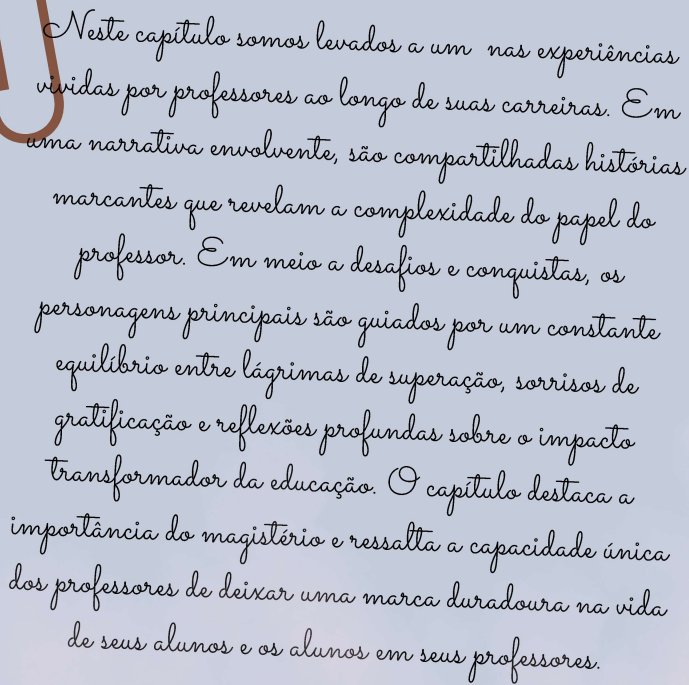 Neste capítulo somos levados a um nas experiências
vividas por professores ao longo de suas carreiras. Em
uma narrativa envolvente, são compartilhadas histórias
marcantes que revelam a complexidade do papel do
professor. Em meio a desafios e conquistas, os
personagens principais são guiados por um constante
equilíbrio entre lágrimas de superação, sorrisos de
gratificação e reflexões profundas sobre o impacto
transformador da educação. O capítulo destaca a
importância do magistério e ressalta a capacidade única
dos professores de deixar uma marca duradoura na vida
de seus alunos e os alunos em seus professores.